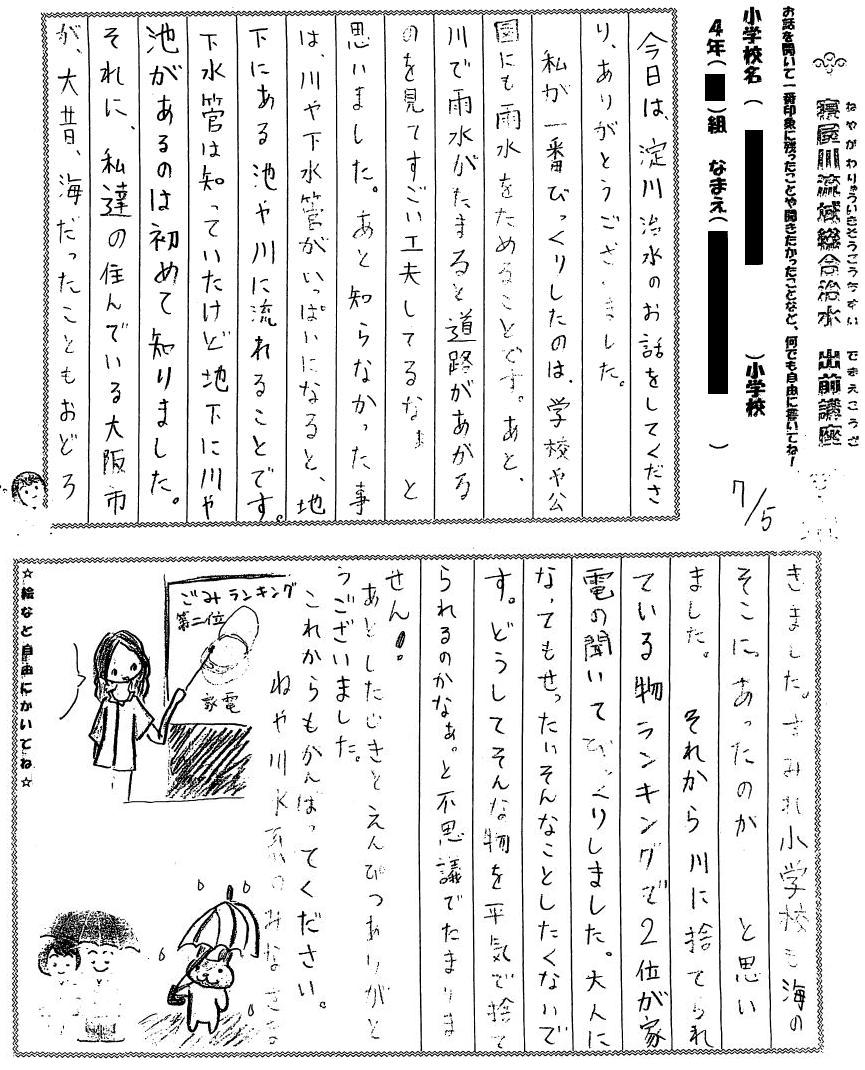 ねやがわりゅういきそうごうちすい でまえこうざ
寝屋川流域総合治水 出前講座
お話を聞いて一番印象に残ったことや聞きたかったことなど、何でも自由に書いてね!
小学校名( )小学校
4年( )組 なまえ( )
7/5
今日は、淀川治水のお話をしてくださ
り、ありがとうございました。
私が一番びっくりしたのは、学校や公
園にも雨水をためることです。あと、
川で雨水がたまると道路があがる
のを見てすごい工夫してるなぁと
思いました。あと知らなかった事
は、川や下水管がいっぱいになると、地
下にある池や川に流れることです。
下水管は知っていたけど地下に川や
池があるのは初めて知りました。
それに、私達の住んでいる大阪市
が、大昔、海だったこともおどろ
きました。すみれ小学校も海の
そこに、あったのか と思い
ました。 それから川に捨てられ
ている物ランキングで2位が家
電の聞いてびっくりしました。大人に
なってもぜったいそんなことしたくないで
す。どうしてそんな物を平気で捨て
られるのかなぁ。と不思議でたまりま
せん!
あとしたじきとえんぴつありがと
うございました。
これからもがんばってください。
ねや川水系のみなさま
ごみランキング
第二位
家電
☆絵など自由にかいてね☆